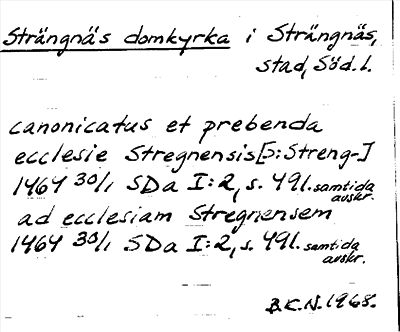 Strängnäs domkyrka i Strängnäs,
stad, Söd.l.
canonicatus et prebenda
ecclesie Stregnensis [5:Streng-]
1464 30/1 SDa I:2, s. 491. samtida avskr.
ad ecclesiam Stregnensem
1464 30/1 SDa I:2, s. 491. samtida avskr.
B.C.N. 1968.